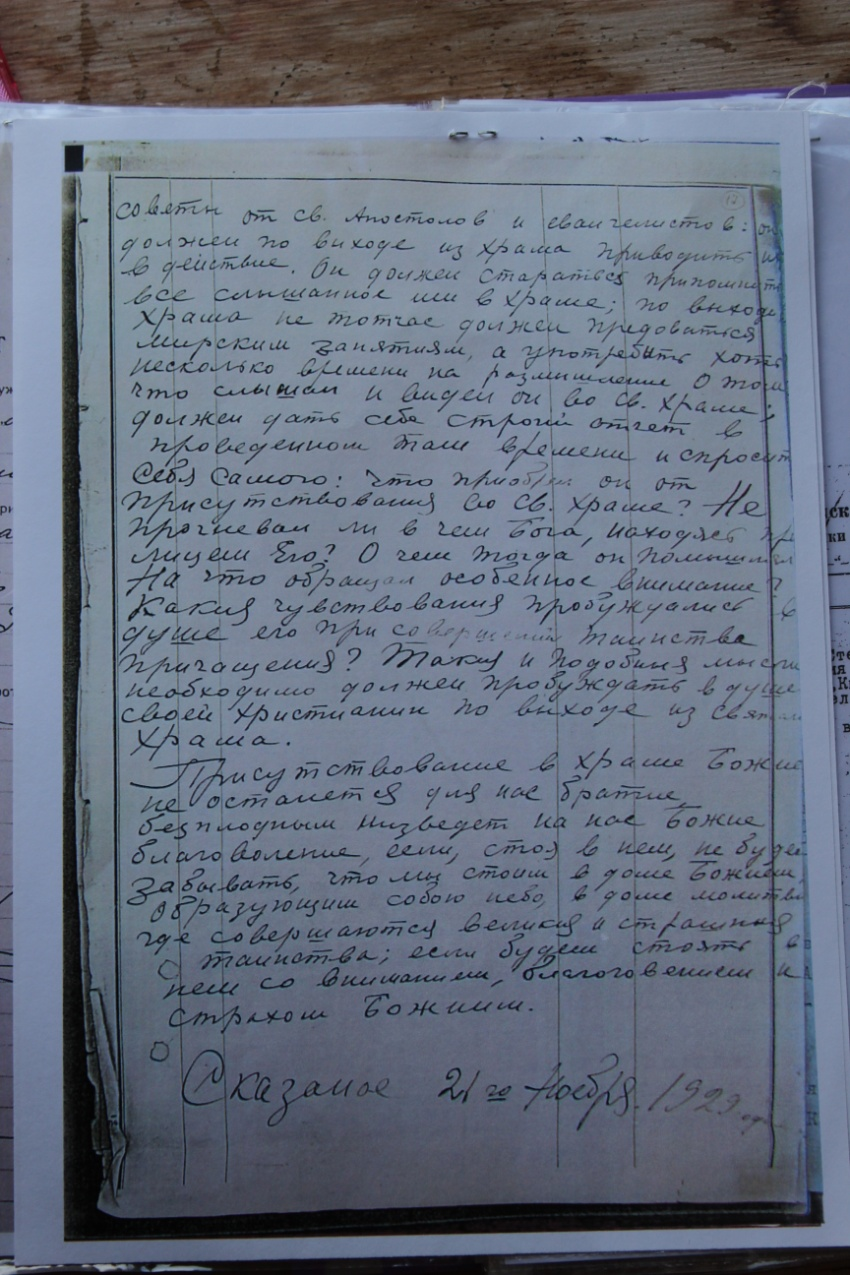 12
советы от св. Апостолов и евангелистов: он
должен по выходе из храма приводить их
в действие. Он должен стараться припомнить
все слышанное им в храме; по выходе
храма не тотчас должен предоваться
мирским занятиям, а употребить хоть
несколько времени на размышление о том
что слышал и видел он во св. храме;
должен дать себе строгий отчет в
проведенном там времени и спросит
себя самого: что приобрел он от
присутствования во св. храме? Не
прогневал ли в чем Бога, находясь пре
лицем Его? О чем тогда он помышлял
На что обращал особенное внимание?
Какия чувствования пробуждались в
душе его при совершении таинства
причащения? Такия и подобныя мысли
необходимо должен пробуждать в душе
своей христианин по выходе из святаго
храма.
Присутствование в храме Божие
не останется для нас братие
безплодным низведет на нас Божие
благоволение, если, стоя в нем, не будем
забывать, что мы стоим в доме Божием,
образующим собою небо, в доме молитвы
где совершаются великия и страшныя
таинства; если будем стоять в
нем со вниманием, благоговением и
страхом Божиим.
Сказаное 21го Ноября. 1929